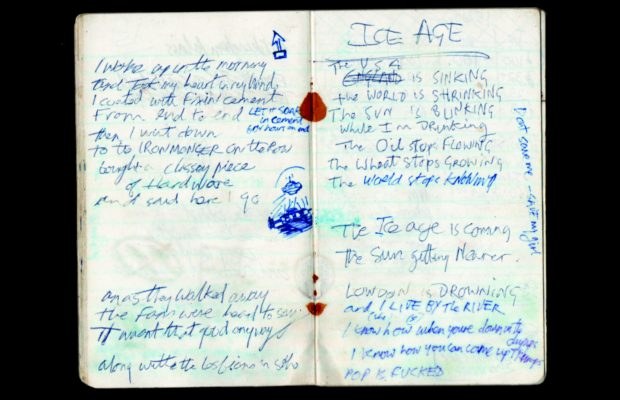 I woke up in the morning
my heart in my hand
I coated with cement
From end to end
LET IT SOAK
in cement
then I went down
to to IRONMONGER ON the Row
bought a classy piece
of Hardware
and said here I go
as they walked away
the were heard to say
It wasnt that good anyway
along with the in
ICE AGE
The USA
ENGLAND IS SINKING
the WORLD IS SHRINKING
The SUN is BLINKING
While I'm Drinking
The Oil stops FLOWING
the Wheat stops GROWING
The World stops KNOWING
The Ice age is coming
the Sun getting Nearer.
LONDON is DROWNING
and I LIVE BY the RIVER
I know how when you're down
I know how you can come up
POP IS FUCKED